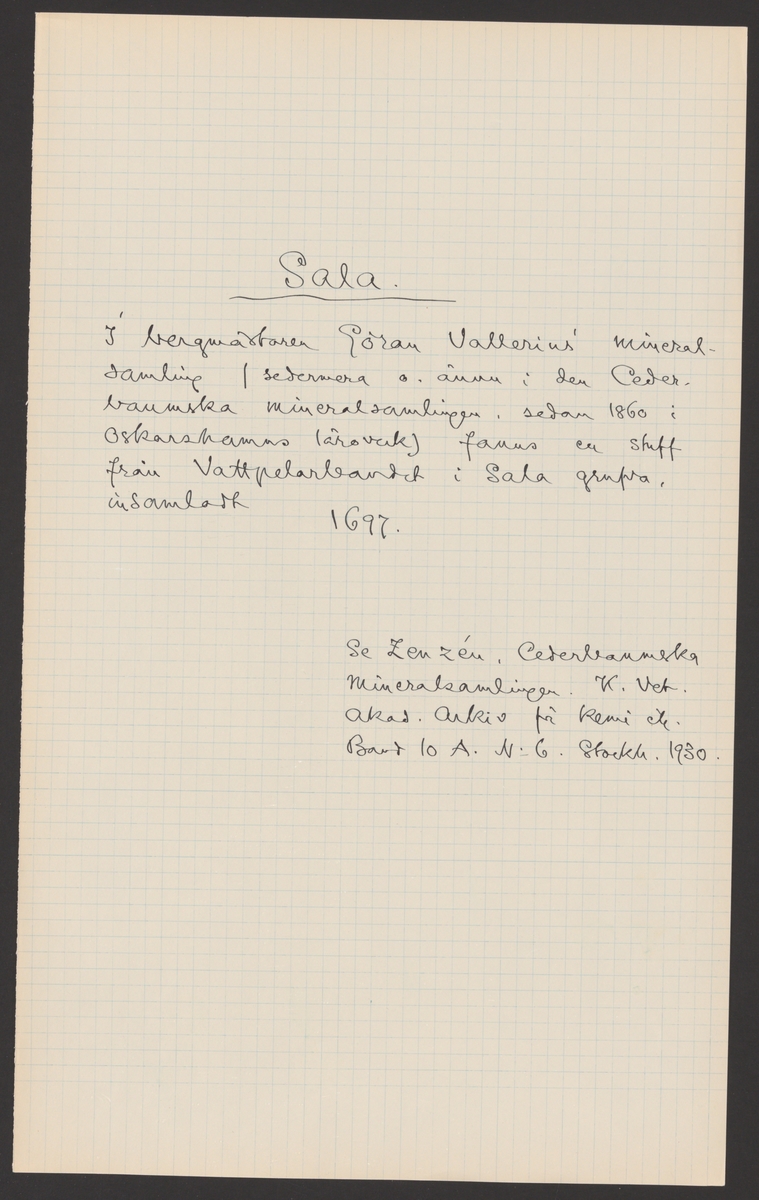 Sala.
I bergmästaren Göran Vallerius' mineral-
samling (sedermera o. ännu i den Ceder-
baumska mineralsamlingen, sedan 1860 i
Oskarshamns läroverk) fanns en stuff
från Vattpelarbandet i Sala grufva,
insamladt
1697.
Se Zenzén, Cederbaumska
Mineralsamlingen. K. Vet.
Akad. Arkiv för Kemi etc.
Band 10 A. N:6. Stockh. 1930.